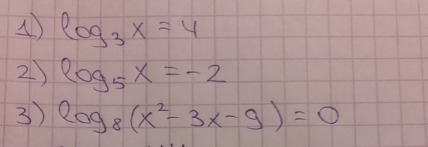 1) log₃ x = 4
2) log₅ x = -2
3) log₈ (x² - 3x - 9) = 0